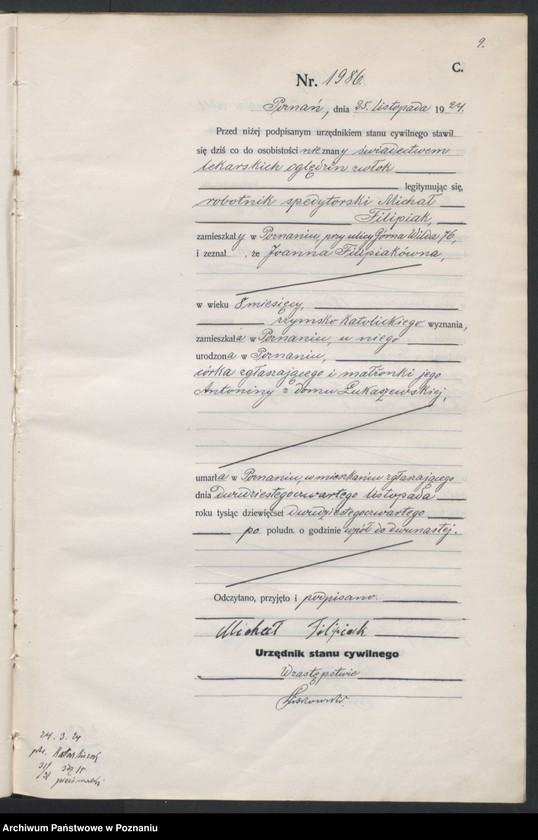 9.
C.
Nr. 1986.
Poznań, dnia 25. listopada 1924.
Przed niżej podpisanym urzędnikiem stanu cywilnego stawił
się dziś co do osobistości nieznany świadectwem
lekarskich oględzin zwłok
legitymując się,
robotnik spedytorski Michał
Filipiak,
zamieszkały w Poznaniu, przy ulicy Górna Wilda 76,
i zeznał, że Joanna Filipiakówna,
w wieku 8 miesięcy,
rzymsko katolickiego wyznania,
zamieszkała w Poznaniu, u niego
urodzona w Poznaniu,
córka zgłaszającego i małżonki jego
Antoniny z domu Łukaszewskiej,
umarła w Poznaniu, w mieszkaniu zgłaszającego
dnia dwudziestego czwartego listopada
roku tysiąc dziewięćset dwudziestego czwartego
po połudn. o godzinie wpół do dwunastej.
Odczytano, przyjęto i podpisano.
Michał Filipiak
Urzędnik stanu cywilnego
W zastępstwie
24. 3. 24
Archiwum Państwowe w Poznaniu